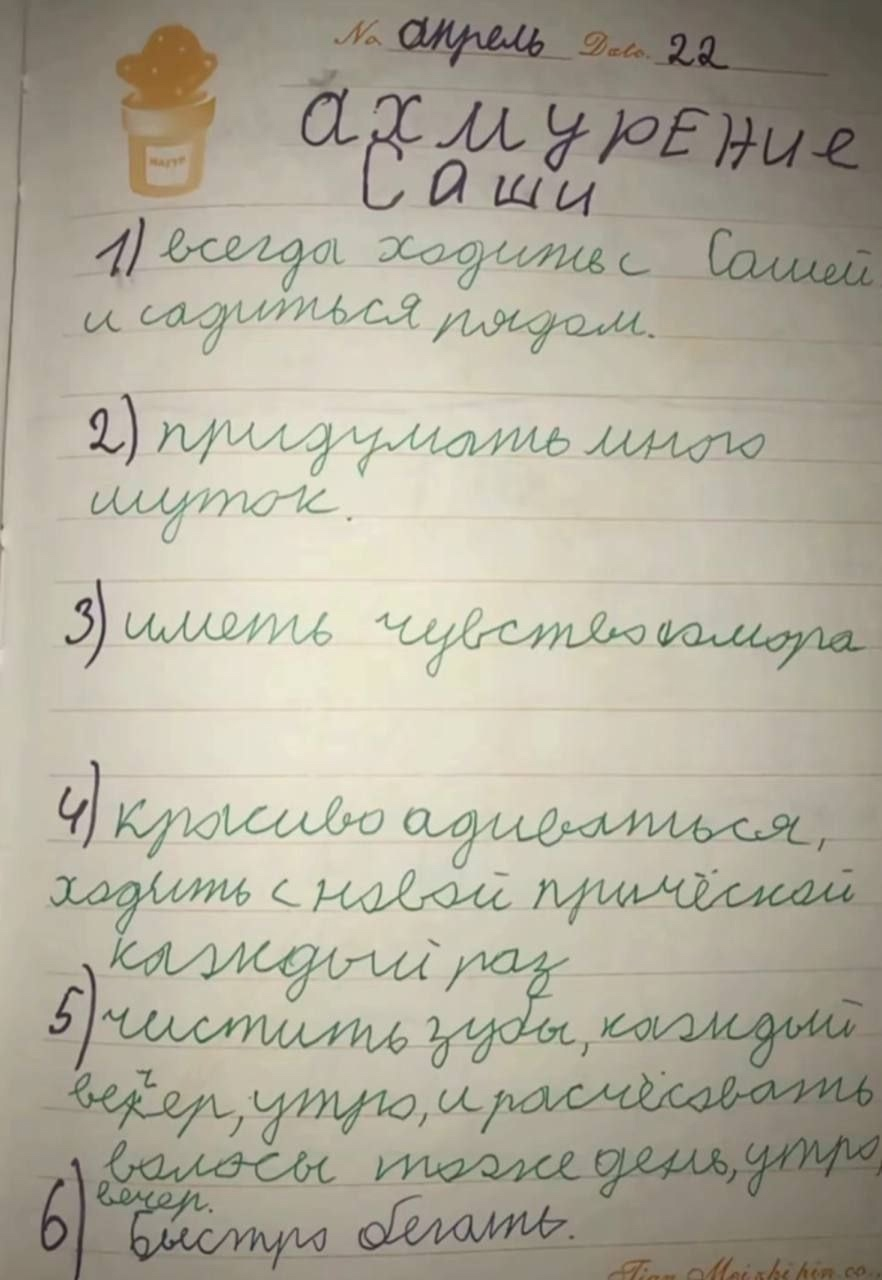 No апрель Date. 22
ахмурЕние
Саши
1) всегда ходить с Сашей
и садиться рядом.
2) придумать много
шуток.
3) иметь чувство юмора
4) красиво адиваться,
ходить с новой причёской
каждый раз
5) чистить зубы, каждый
вечер, утро, и расчёсовать
волосы тоже день, утро,
вечер.
6) Быстро бегать.